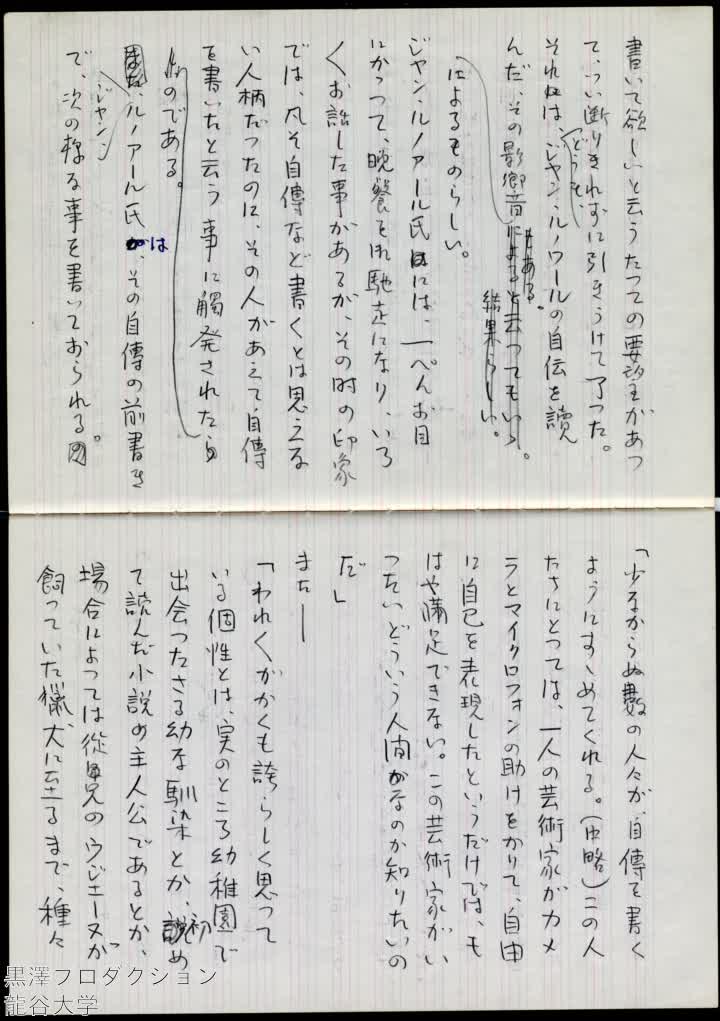 書いて欲しいと云うたつての要望があつ
て、つい断りきれずに引きうけて了つた。
それは、どうも、ジャン・ルノワールの自伝を讀
んだ、その影響
もある
によると云つてもいゝ。
結果らしい。
によるものらしい。
ジャン・ルノアール氏には、一ぺんお目
にかかつて、晩餐を御馳走になり、いろ
くお話した事があるが、その時の印象
では、凡そ自傳など書くとは思えな
い人柄だつたのに、その人があえて自傳
を書いたと云う事に觸発された
のである。
ジャン・ルノアール氏は、その自傳の前書き
で、次の様な事を書いておられる。
「少なからぬ數の人々が、自傳を書く
ようにすゝめてくれる。(中略)この人
たちにとつては、一人の芸術家がカメ
ラとマイクロフォンの助けをかりて、自由
に自己を表現したというだけでは、も
はや満足できない。この芸術家がい
つたいどういう人間なのか知りたいの
だ」
また―
「われくがかくも誇らしく思って
いる個性とは、実のところ幼稚園で
出会つたさる幼な馴染とか、初め
て読んだ小説の主人公であるとか、
場合によっては従兄のウジェーヌが
飼っていた獵犬に至るまで、種々
黒澤プロダクション
龍谷大学